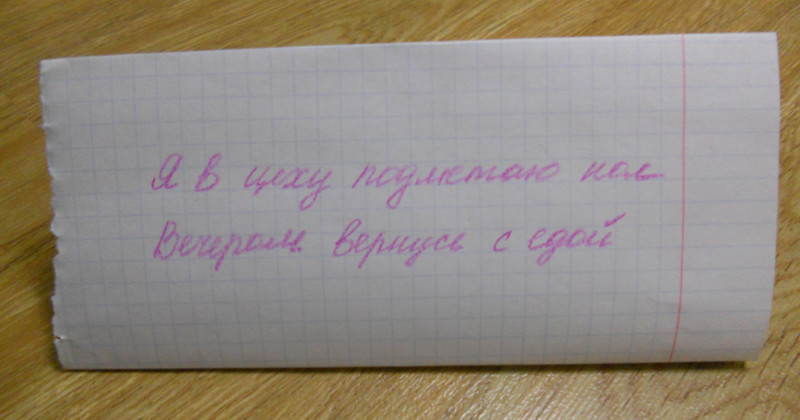 Я в цеху подметаю пол
Вечером вернусь с едой